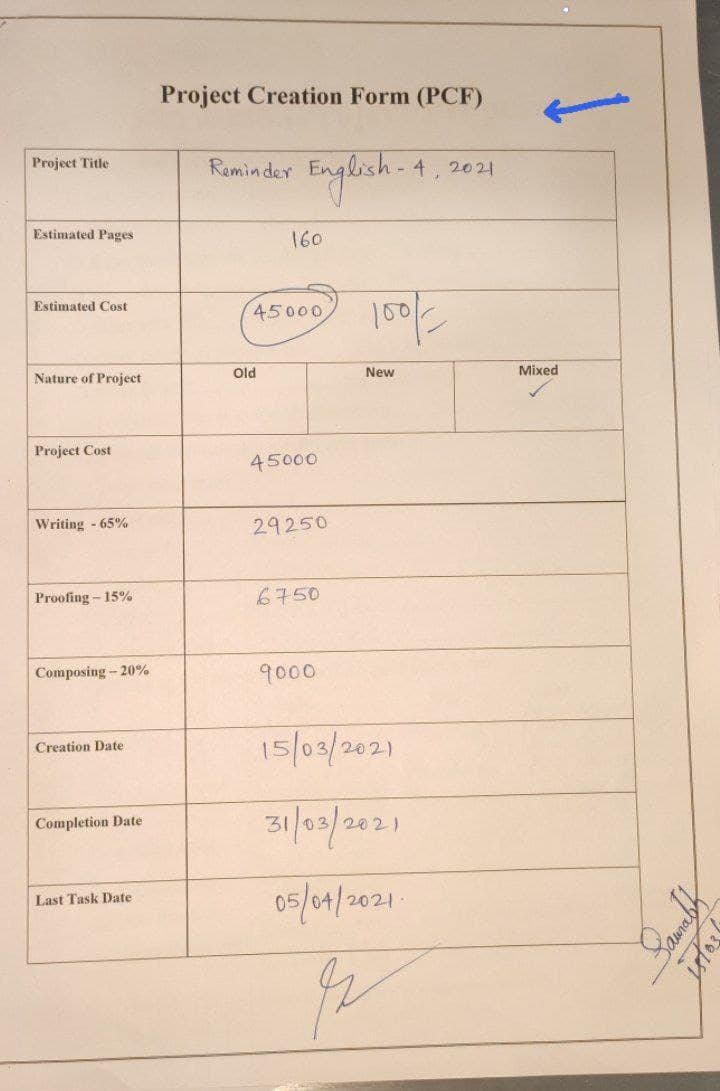 Project Creation Form (PCF)
Project Title Reminder English - 4, 2021
Estimated Pages 160
Estimated Cost 45000 100/-
Nature of Project Old New Mixed ✓
Project Cost 45000
Writing - 65% 29250
Proofing – 15% 6750
Composing – 20% 9000
Creation Date 15/03/2021
Completion Date 31/03/2021
Last Task Date 05/04/2021.
Saurabh
15/03/